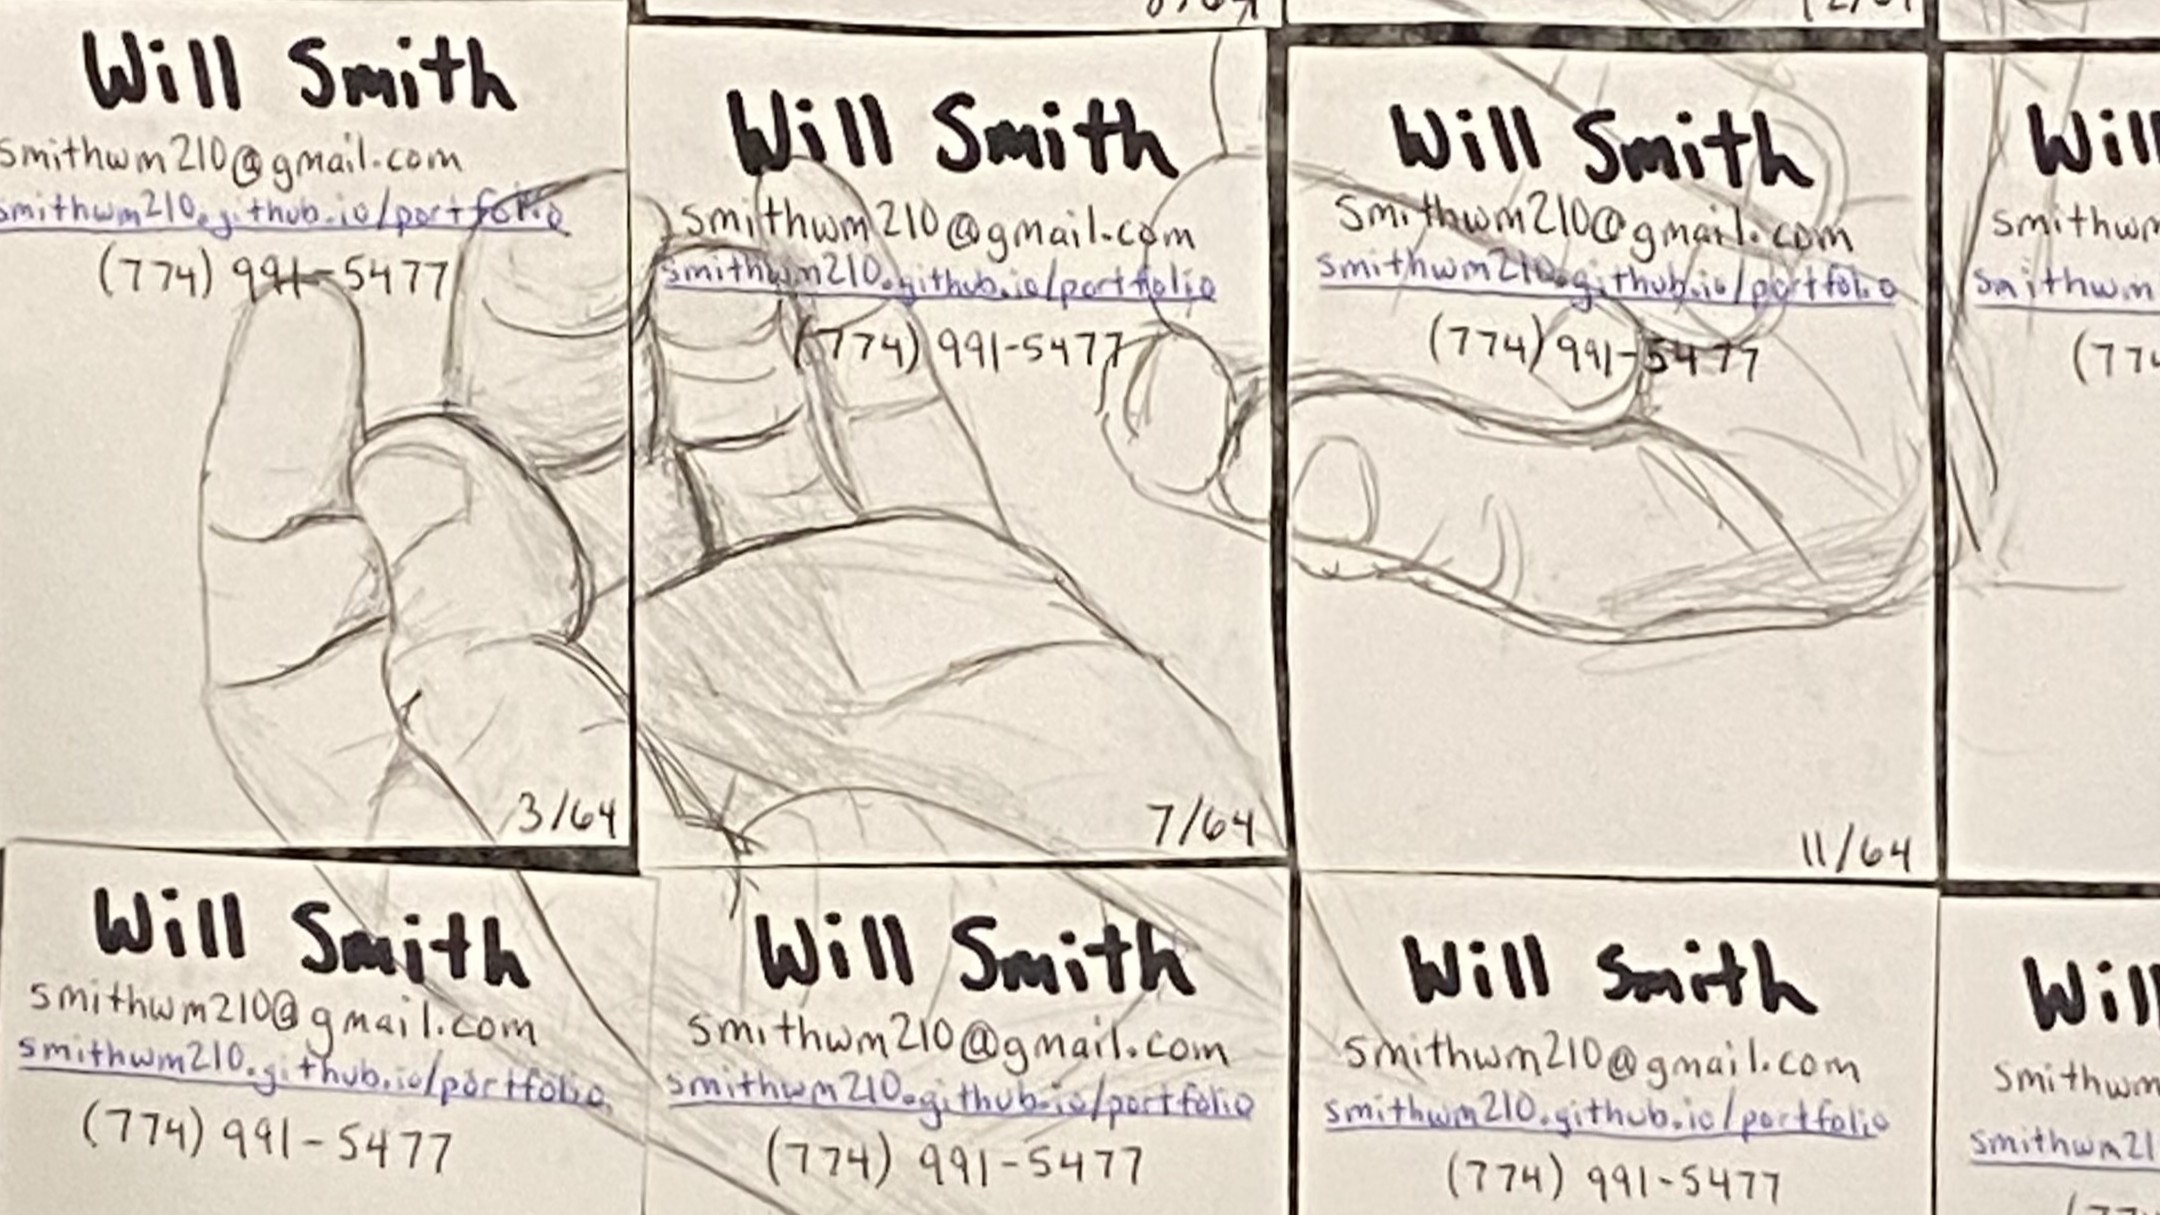 Will Smith
smithwm210@gmail.com
smithwm210.github.io/portfolio
(774) 991-5477
3/64
Will Smith
smithwm210@gmail.com
smithwm210.github.io/portfolio
(774) 991-5477
7/64
Will Smith
smithwm210@gmail.com
smithwm210.github.io/portfolio
(774) 991-5477
11/64
Will
smithwm
smithwm
(774
Will Smith
smithwm210@gmail.com
smithwm210.github.io/portfolio
(774) 991-5477
Will Smith
smithwm210@gmail.com
smithwm210.github.io/portfolio
(774) 991-5477
Will Smith
smithwm210@gmail.com
smithwm210.github.io/portfolio
(774) 991-5477
Will
smithwm
smithwm21